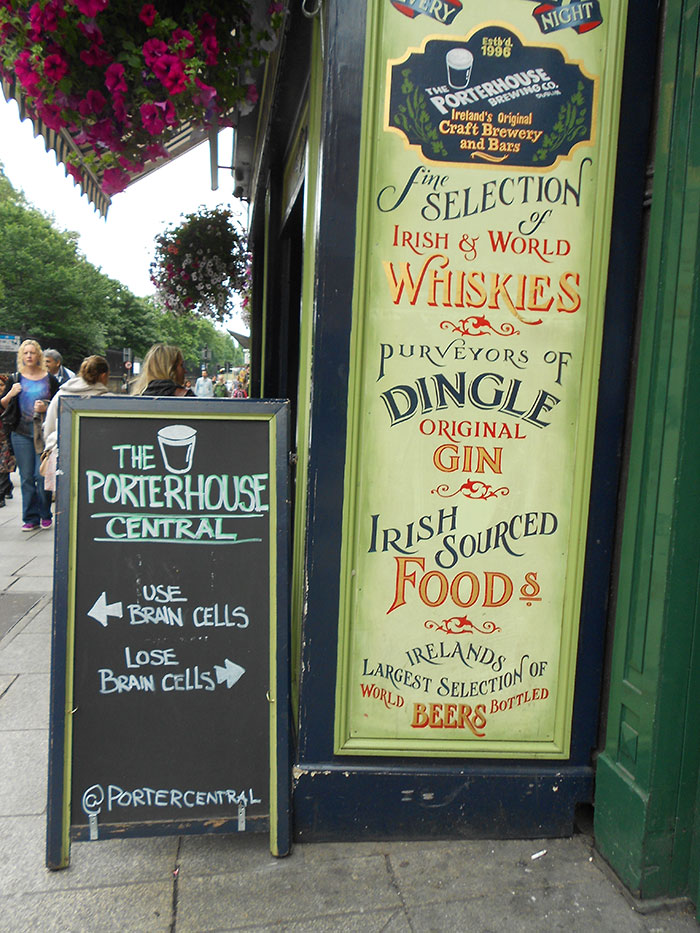 THE
PORTERHOUSE
CENTRAL
USE
BRAIN CELLS
LOSE
BRAIN CELLS
@PORTERCENTRAL
NIGHT
Estb'd.
1996
THE
PORTERHOUSE
BREWING CO.
DUBLIN
Ireland's Original
Craft Brewery
and Bars
fine
SELECTION
of
IRISH & WORLD
WHISKIES
PURVEYORS OF
DINGLE
ORIGINAL
GIN
IRISH
SOURCED
FOODS
IRELANDS
LARGEST SELECTION OF
WORLD BOTTLED
BEERS